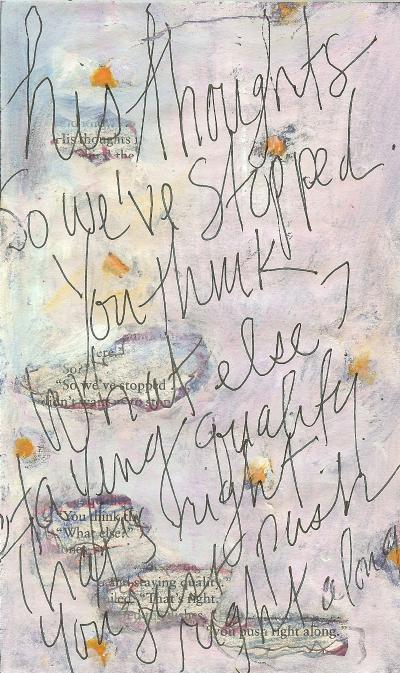 his thoughts
So we've Stopped.
You think
What else,
staying quality
that's right
You Just push
right along
his thoughts
the
"So?
"So we've stopped
didn't want
"You think
"What else?"
and staying quality."
"That's right.
"you push right along."